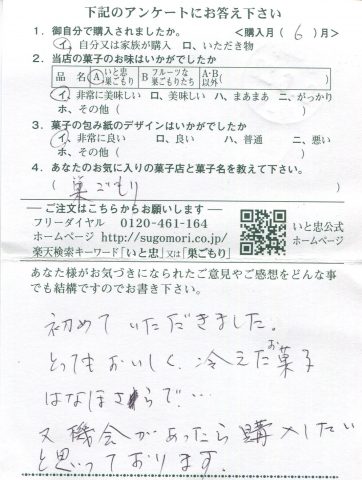 下記のアンケートにお答え下さい
1. 御自分で購入されましたか。 <購入月( 6 )月>
イ、自分又は家族が購入 ロ、いただき物
2. 当店の菓子のお味はいかがでしたか
品 名 A いと忠巣ごもり B フルーツな巣ごもりたち A・B以外( )
イ、非常に美味しい ロ、美味しい ハ、まあまあ ニ、がっかり
ホ、その他( )
3. 菓子の包み紙のデザインはいかがでしたか
イ、非常に良い ロ、良い ハ、普通 ニ、悪い
ホ、その他( )
4. あなたのお気に入りの菓子店と菓子名を教えて下さい。
( 巣ごもり )
ご注文はこちらからお願いします
フリーダイヤル 0120-461-164
ホームページ http://sugomori.co.jp/
楽天検索キーワード「いと忠」又は「巣ごもり」
いと忠公式
ホームページ
あなた様がお気づきになられたご意見やご感想をどんな事
でも結構ですのでお書き下さい。
初めていただきました。
とってもおいしく、冷えたお菓子
はなほさらで…
又機会があったら購入したい
と思っております。